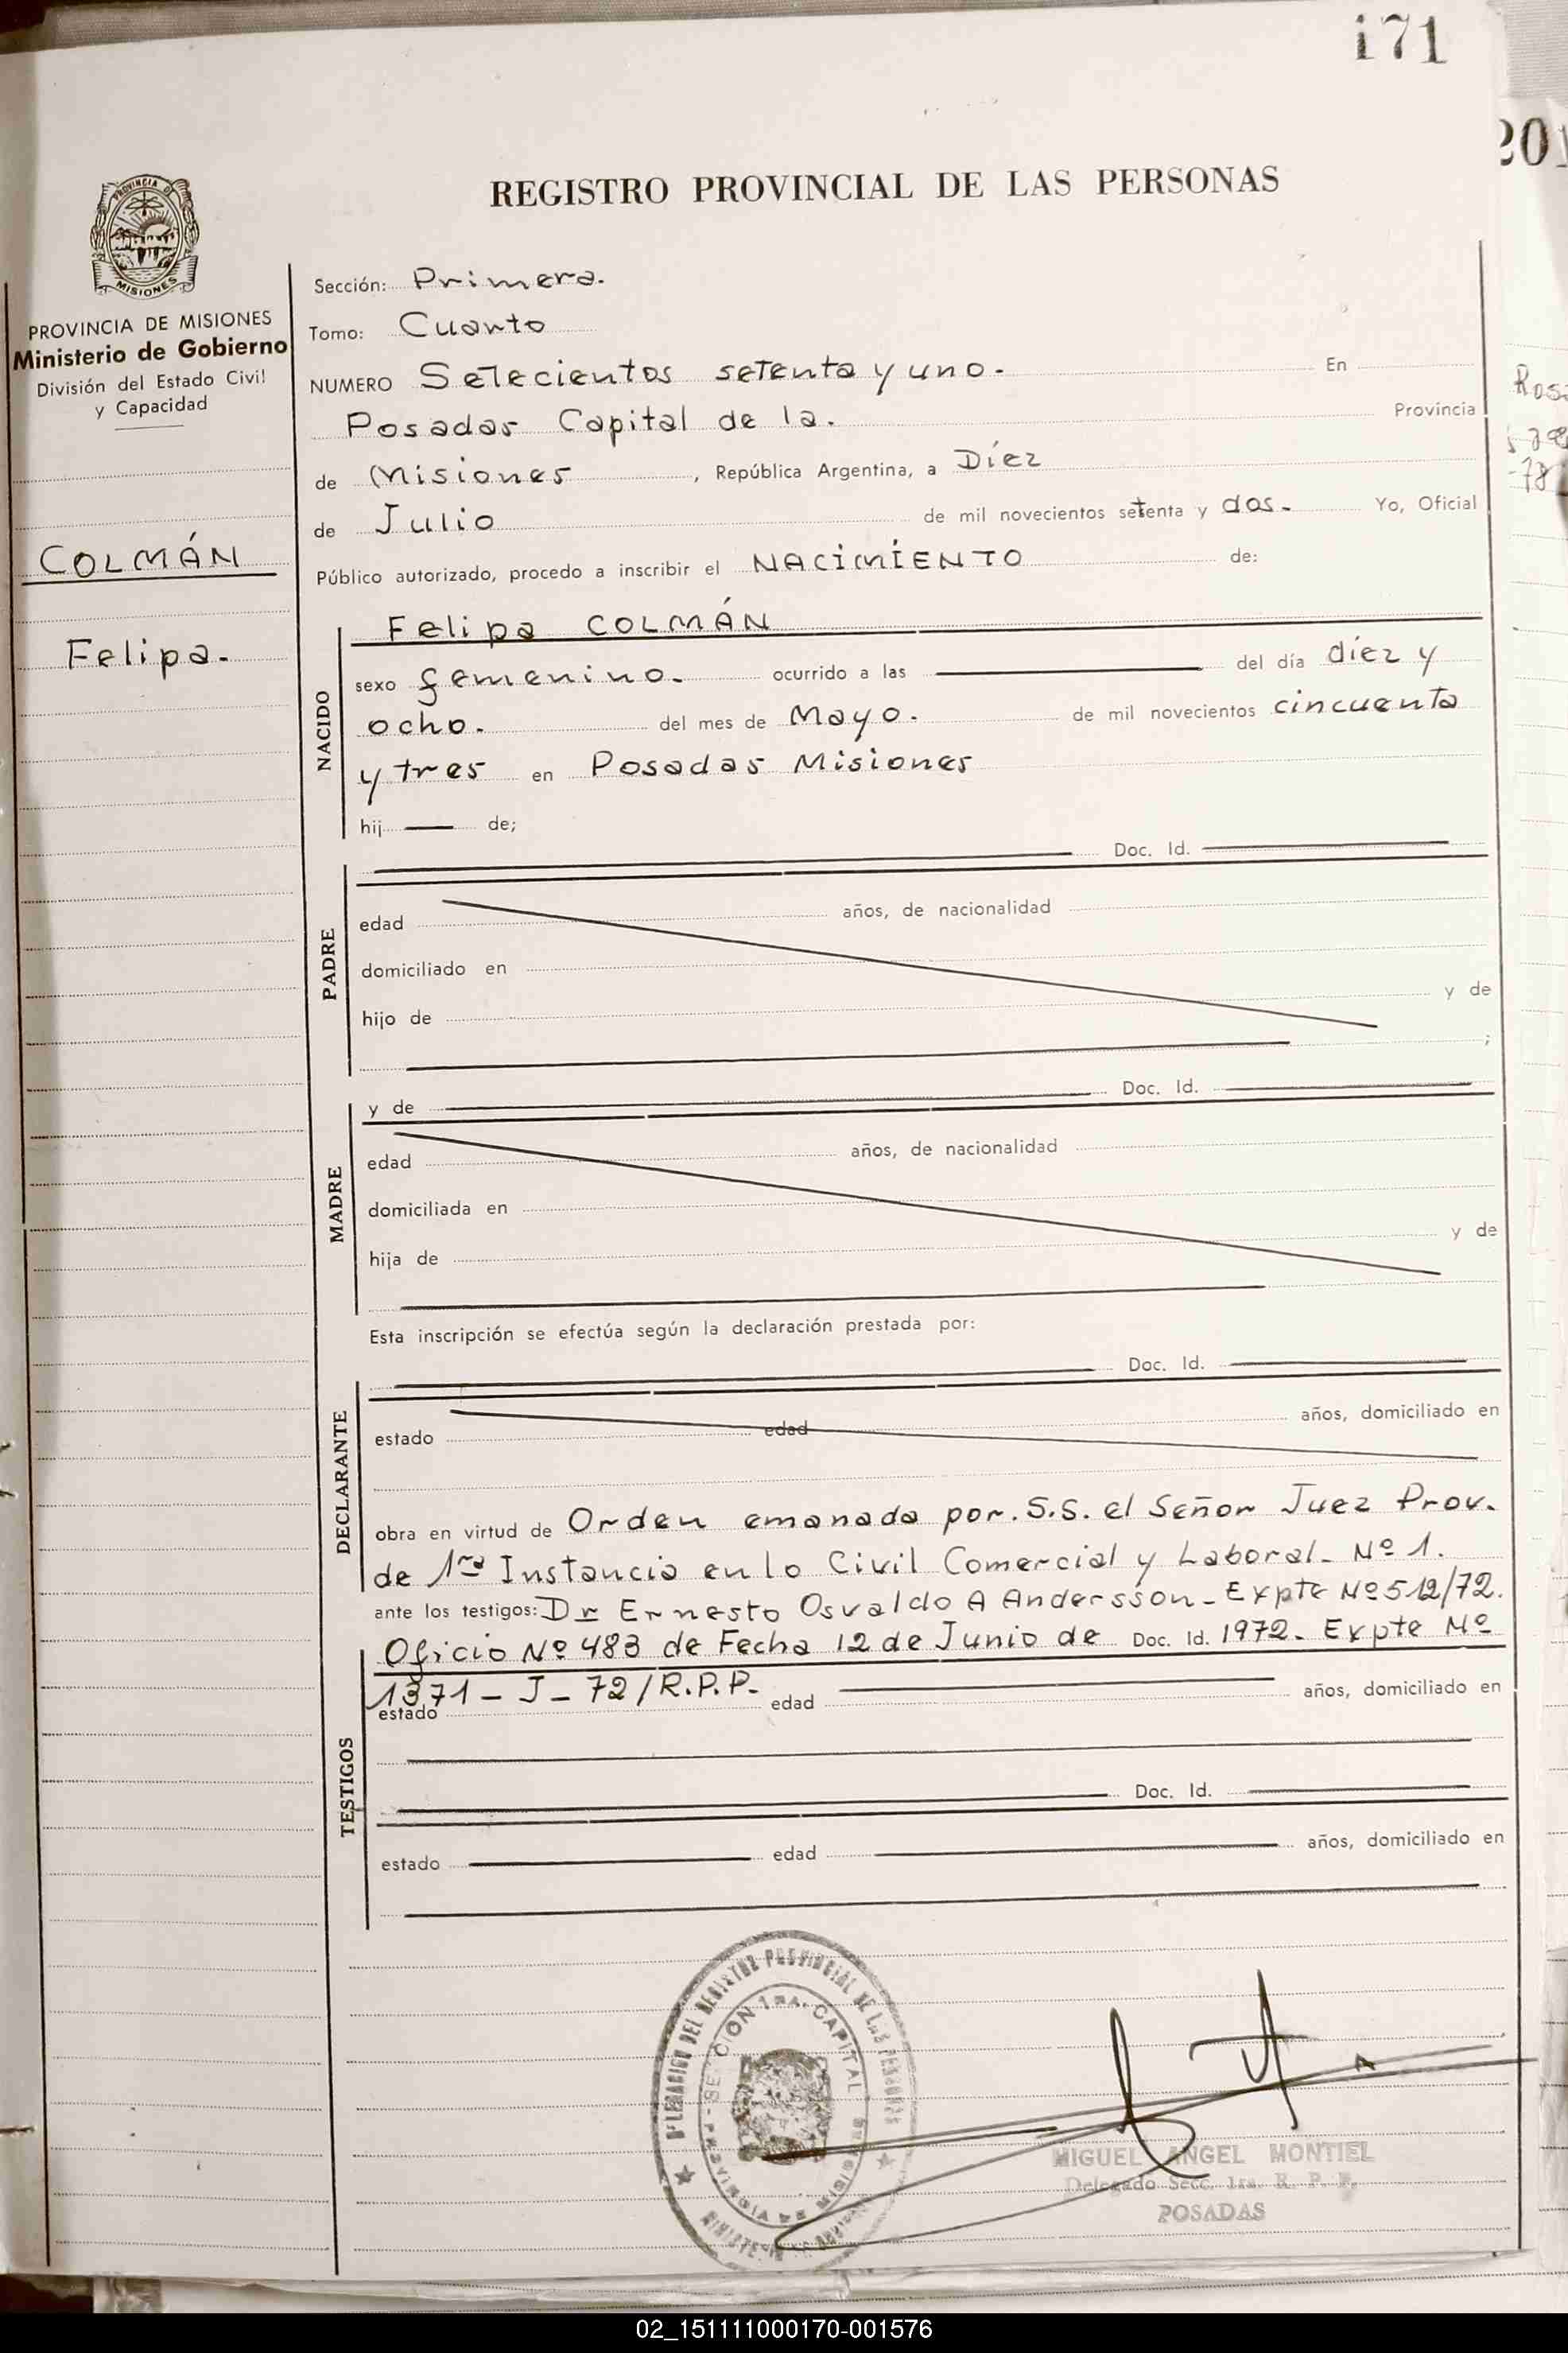 171
201
REGISTRO PROVINCIAL DE LAS PERSONAS
PROVINCIA DE
MISIONES
PROVINCIA DE MISIONES
Ministerio de Gobierno
División del Estado Civil
y Capacidad
COLMÁN
Felipa.
Sección: Primera.
Tomo: Cuarto
NUMERO Setecientos setenta y uno. En
Posadas Capital de la. Provincia
de Misiones, República Argentina, a Díez
de Julio de mil novecientos setenta y dos. Yo, Oficial
Público autorizado, procedo a inscribir el NACIMIENTO de:
NACIDO
Felipa COLMÁN
sexo femenino. ocurrido a las del día díez y
ocho. del mes de Mayo. de mil novecientos cincuenta
y tres en Posadas Misiones
hij de;
PADRE
Doc. Id.
edad años, de nacionalidad
domiciliado en
hijo de y de
;
MADRE
y de Doc. Id.
edad años, de nacionalidad
domiciliada en
hija de y de
Esta inscripción se efectúa según la declaración prestada por:
DECLARANTE
Doc. Id.
estado edad años, domiciliado en
obra en virtud de Orden emanada por. S.S. el Señor Juez Prov.
de 1ra Instancia en lo Civil Comercial y Laboral. Nº 1.
ante los testigos: Dr Ernesto Osvaldo A Andersson. Expte Nº 512/72.
TESTIGOS
Oficio Nº 483 de Fecha 12 de Junio de Doc. Id. 1972. Expte Nº
1371 - J - 72/R.P.P.
estado edad años, domiciliado en
Doc. Id.
estado edad años, domiciliado en
DEL REGISTRO PROVINCIAL DE LAS PERSONAS
SECCION 1RA. CAPITAL
MIGUEL ANGEL MONTIEL
Delegado Secc. 1ra. R. P. P.
POSADAS
02_151111000170-001576